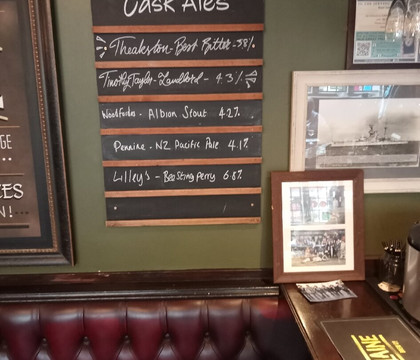 Cask Ales
Theakston - Best Bitter - 3.8%
Timothy Taylor - Landlord - 4.3%
Woodfordes - Albion Stout 4.2%
Pennine - NZ Pacific Pale 4.1%
Lilley's - Bee Sting Perry 6.8%
GE
...
ES
N!...